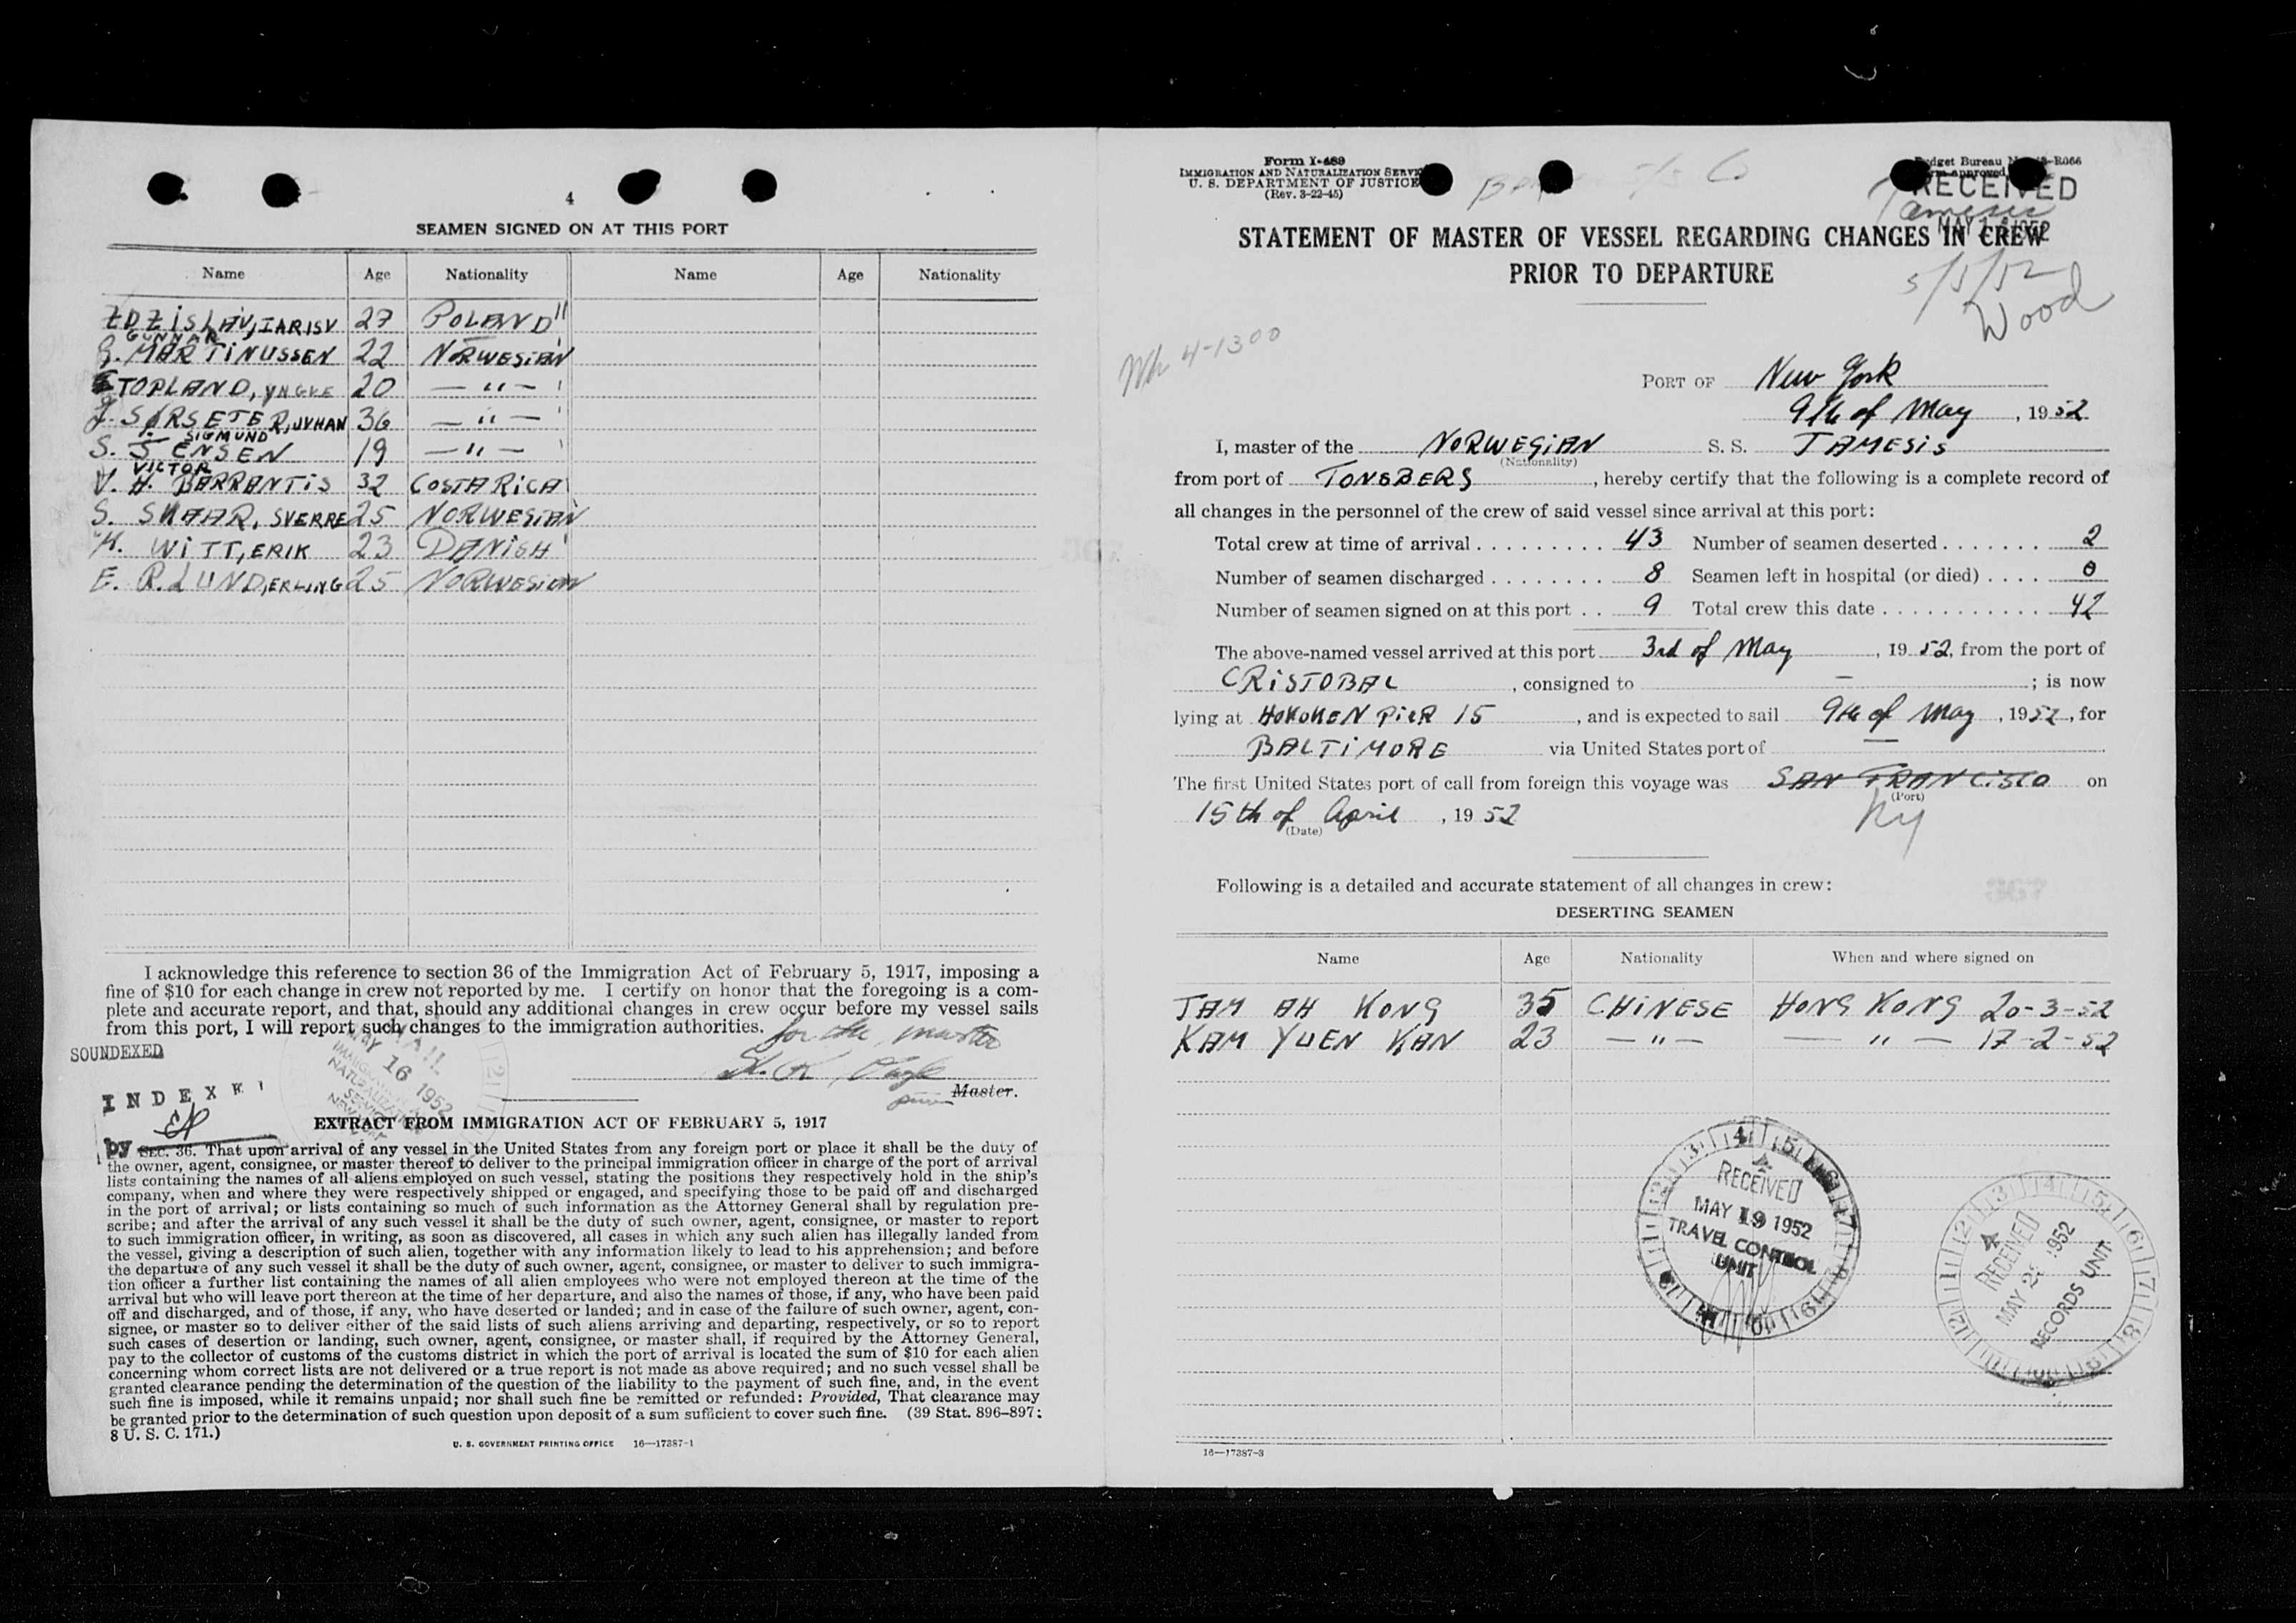 4
SEAMEN SIGNED ON AT THIS PORT
Name Age Nationality Name Age Nationality
27 POLAND "
GUNNAR
G. MARTINUSSEN 22 NORWEGIAN
STOPLAND, YNGVE 20 — " —
J. SØRSETER, JVHAN 36 — " —
SIGMUND
S. JENSEN 19 — " —
VICTOR
V. H. BARRANTIS 32 COSTA RICA
S. SKAAR, SVERRE 25 NORWEGIAN
K. WITT, ERIK 23 DANISH
E. R. LUND, ERLING 25 NORWEGIAN
I acknowledge this reference to section 36 of the Immigration Act of February 5, 1917, imposing a
fine of $10 for each change in crew not reported by me. I certify on honor that the foregoing is a com-
plete and accurate report, and that, should any additional changes in crew occur before my vessel sails
from this port, I will report such changes to the immigration authorities.
for the master
SOUNDEXED
MAY 16 1952
Master.
INDEXE
by
EXTRACT FROM IMMIGRATION ACT OF FEBRUARY 5, 1917
SEC. 36. That upon arrival of any vessel in the United States from any foreign port or place it shall be the duty of
the owner, agent, consignee, or master thereof to deliver to the principal immigration officer in charge of the port of arrival
lists containing the names of all aliens employed on such vessel, stating the positions they respectively hold in the ship's
company, when and where they were respectively shipped or engaged, and specifying those to be paid off and discharged
in the port of arrival; or lists containing so much of such information as the Attorney General shall by regulation pre-
scribe; and after the arrival of any such vessel it shall be the duty of such owner, agent, consignee, or master to report
to such immigration officer, in writing, as soon as discovered, all cases in which any such alien has illegally landed from
the vessel, giving a description of such alien, together with any information likely to lead to his apprehension; and before
the departure of any such vessel it shall be the duty of such owner, agent, consignee, or master to deliver to such immigra-
tion officer a further list containing the names of all alien employees who were not employed thereon at the time of the
arrival but who will leave port thereon at the time of her departure, and also the names of those, if any, who have been paid
off and discharged, and of those, if any, who have deserted or landed; and in case of the failure of such owner, agent, con-
signee, or master so to deliver either of the said lists of such aliens arriving and departing, respectively, or so to report
such cases of desertion or landing, such owner, agent, consignee, or master shall, if required by the Attorney General,
pay to the collector of customs of the customs district in which the port of arrival is located the sum of $10 for each alien
concerning whom correct lists are not delivered or a true report is not made as above required; and no such vessel shall be
granted clearance pending the determination of the question of the liability to the payment of such fine, and, in the event
such fine is imposed, while it remains unpaid; nor shall such fine be remitted or refunded: Provided, That clearance may
be granted prior to the determination of such question upon deposit of a sum sufficient to cover such fine. (39 Stat. 896–897;
8 U. S. C. 171.)
U. S. GOVERNMENT PRINTING OFFICE 16—17387-1
Form I-489
IMMIGRATION AND NATURALIZATION SERVICE
U. S. DEPARTMENT OF JUSTICE
(Rev. 3-22-45)
Budget Bureau No. 43-R066
RECEIVED
Tamesis
STATEMENT OF MASTER OF VESSEL REGARDING CHANGES IN CREW
PRIOR TO DEPARTURE
5/5/52
Wood
Wh 4-1300
PORT OF New York
9th of May, 1952
I, master of the NORWEGIAN S. S. TAMESIS
(Nationality)
from port of TONSBERG, hereby certify that the following is a complete record of
all changes in the personnel of the crew of said vessel since arrival at this port:
Total crew at time of arrival . . . . . . . . . . 43 Number of seamen deserted . . . . . . . 2
Number of seamen discharged . . . . . . . . 8 Seamen left in hospital (or died) . . . . 0
Number of seamen signed on at this port . . 9 Total crew this date . . . . . . . . . . . . 42
The above-named vessel arrived at this port 3rd of May, 1952, from the port of
CRISTOBAL, consigned to —; is now
lying at HOKOKEN PIER 15, and is expected to sail 9th of May, 1952, for
BALTIMORE via United States port of —
The first United States port of call from foreign this voyage was SAN FRANCISCO on
(Port)
15th of April, 1952 NY
(Date)
Following is a detailed and accurate statement of all changes in crew:
DESERTING SEAMEN
Name Age Nationality When and where signed on
TAM AH KONG 35 CHINESE HONG KONG 20-3-52
KAM YUEN KAN 23 — " — — " — 17-2-52
RECEIVED
MAY 19 1952
TRAVEL CONTROL
UNIT
RECEIVED
MAY 2 1952
RECORDS UNIT
16—17387-3